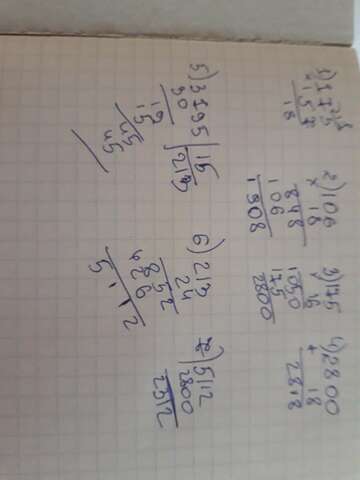 1) 175
157
18
2) 106
× 18
848
106
1908
3) 175
16
1050
175
2800
4) 2800
+ 18
2818
5) 3195 | 15
30 213
19
15
45
45
6) 213
24
852
426
5112
7) 5112
2800
2312